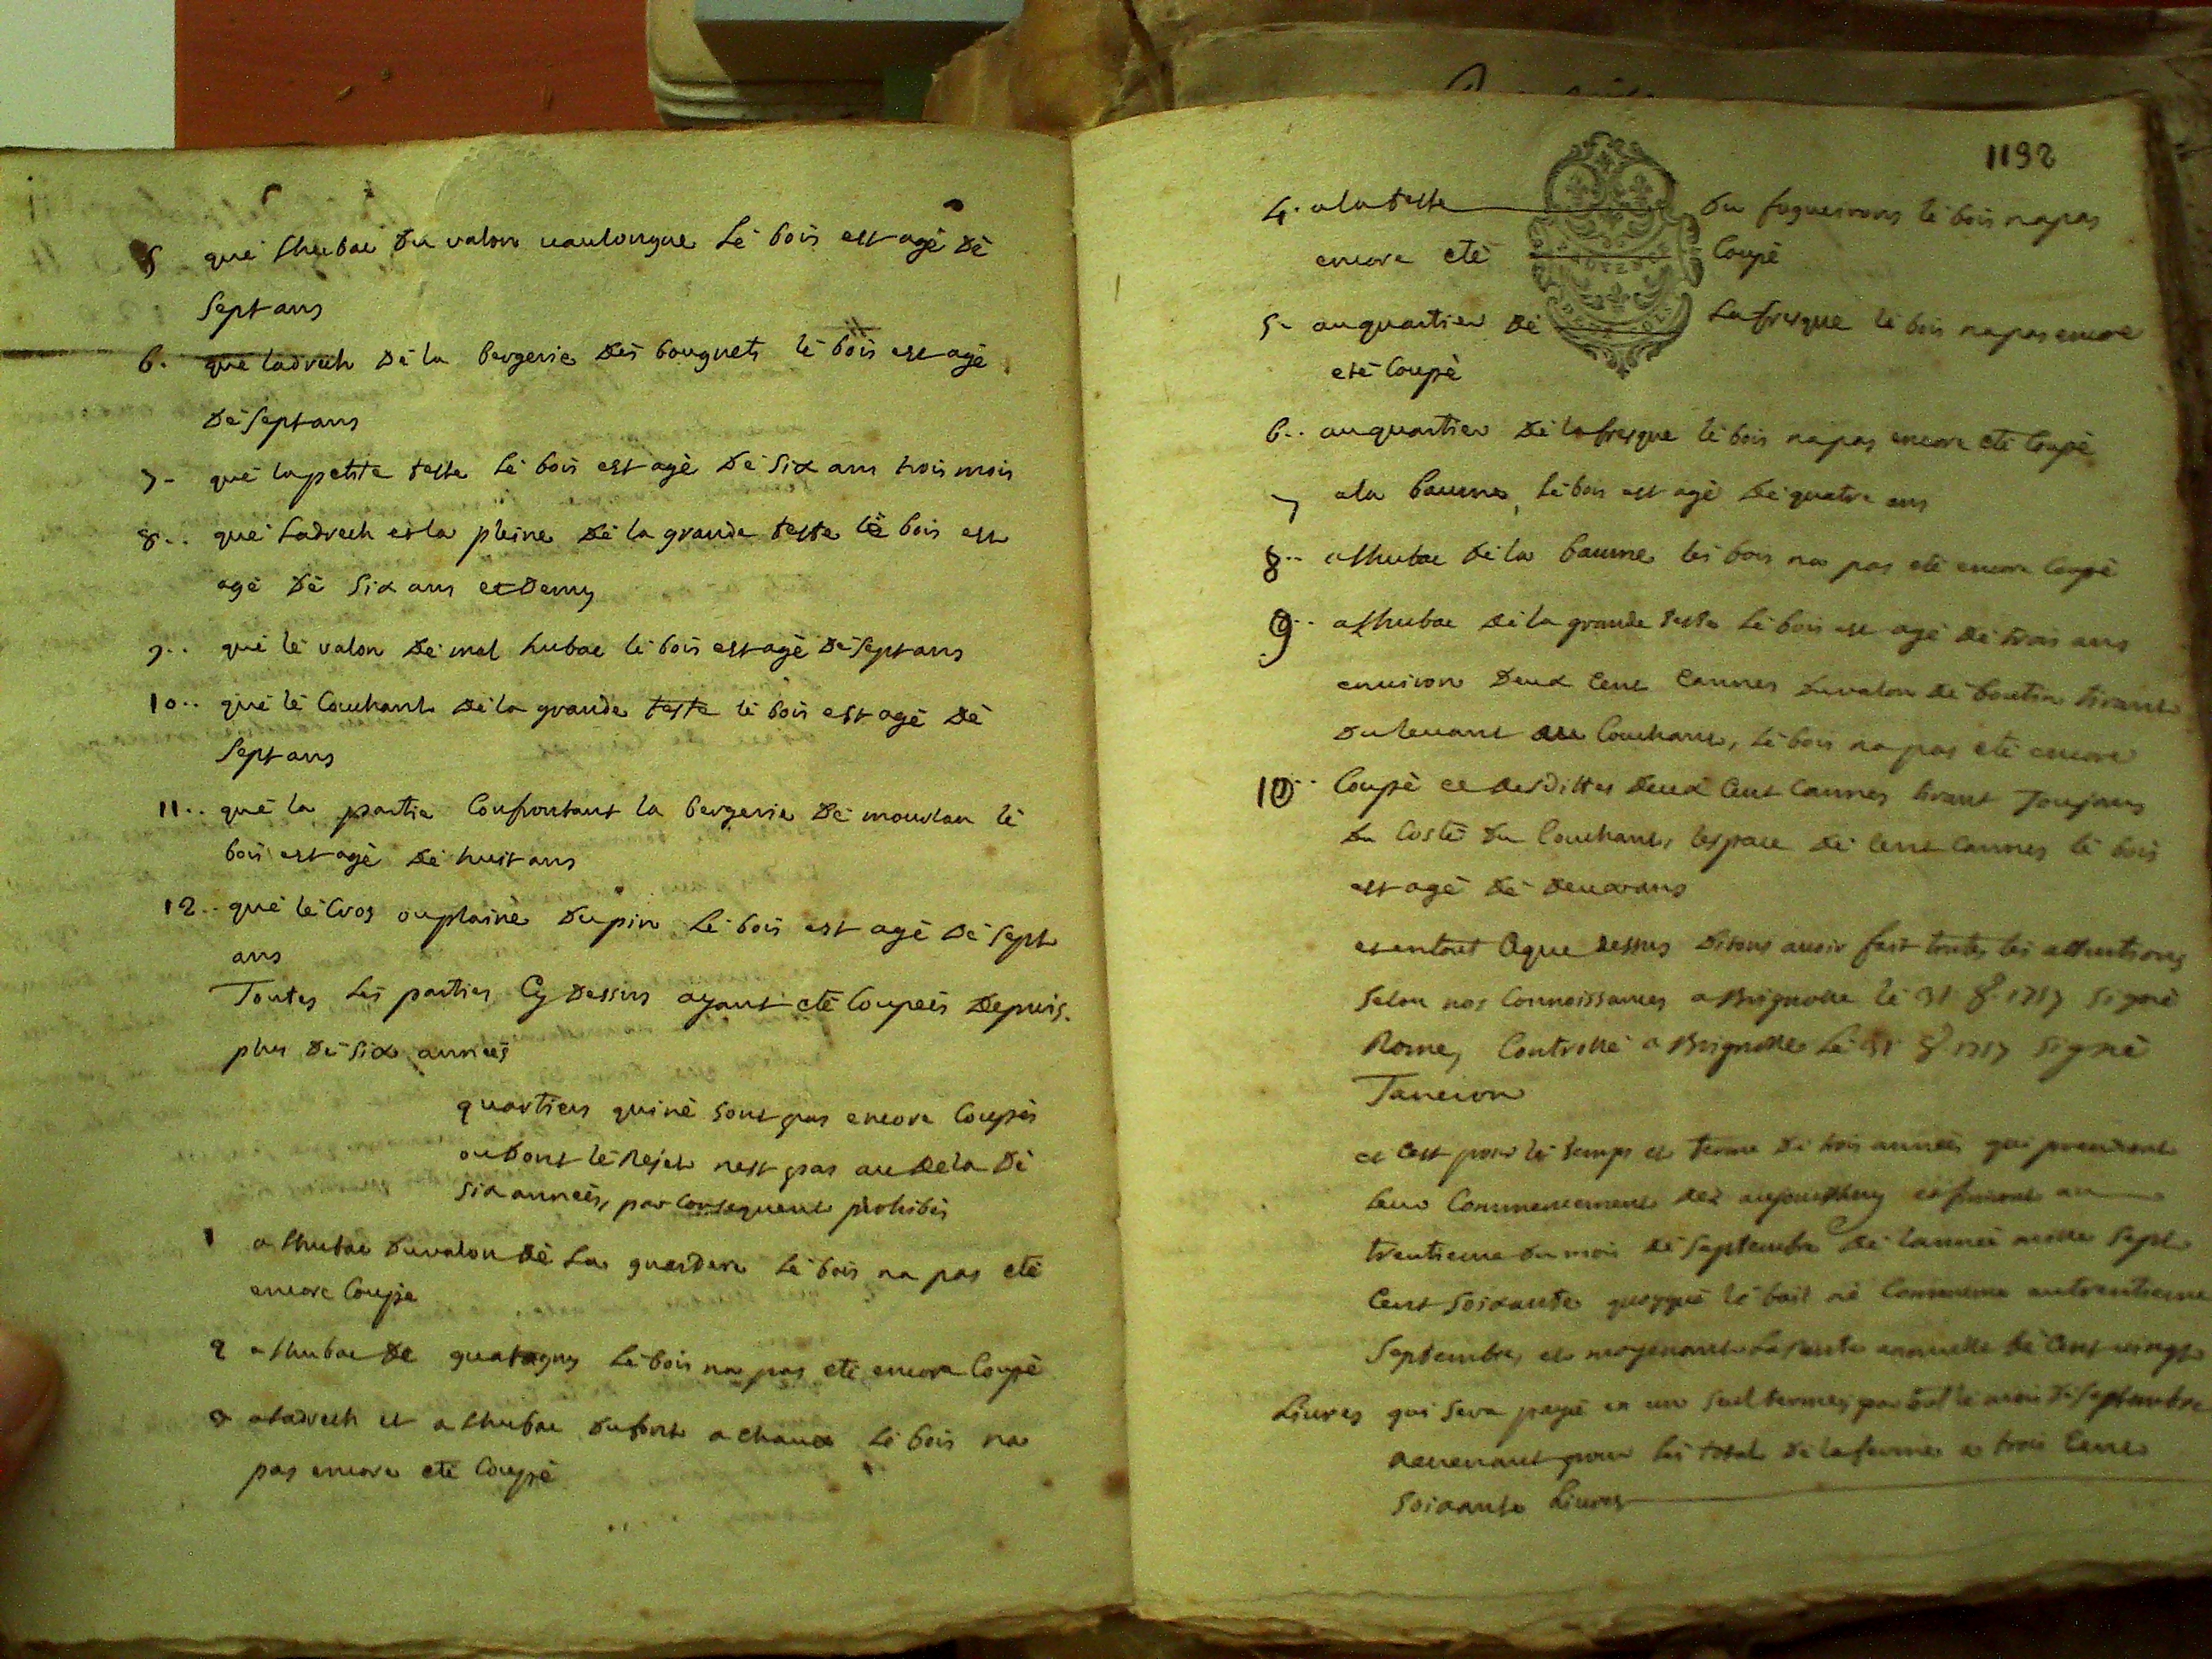 5 que lhubac du valon vaulongue le bois est agé de
sept ans
6. que ladrech de la bergerie des bouguets le bois est agé
de sept ans
7- que la petite teste le bois est agé de six ans trois mois
8.. que ladrech et la pleine de la grande teste le bois est
agé de six ans et demy
9.. que le valon de mal hubac le bois est agé de sept ans
10.. que le couchant de la grande teste le bois est agé de
sept ans
11.. que la partie confrontant la bergerie de mourlan le
bois est agé de huit ans
12.. que le cros ou plaine du pin le bois est agé de sept
ans
Toutes les parties cy dessus ayant eté coupeés depuis
plus de six anneés
quartiers qui ne sont pas encore coupés
ou dont le rejet nest pas au dela de
six anneés, par consequent prohibés
1 a lhubac du valon de la le bois na pas eté
encore coupé
2 a lhubac de le bois na pas eté encore coupé
3 a ladrech et a lhubac du fort a chaux le bois na
pas encore eté coupé
1192
4. a la teste du fogueirons le bois na pas
encore eté coupé
5- au quartier de la fresque le bois na pas encore
eté coupé
6.. au quartier de la fresque le bois na pas encore eté coupé
7 a la baume, le bois est agé de quatre ans
8.. a lhubac de la baume le bois na pas eté encore coupé
9.. a lhubac de la grande teste le bois est agé de trois ans
environ deux cent cannes du valon de boutin tirant
du levant au couchant, le bois na pas eté encore
10.. coupé et desdittes deux cent cannes tirant toujours
du costé du couchant, lespace de cent cannes le bois
est agé de deux ans
et en tout ce que dessus disons avoir fait toutes les attentions
selon nos connoissances a Brignolle le 31 8. 1757 signé
Rome, controllé a Brignolle le 31 8. 1757 signé
Taneron
et cest pour le temps et terme de trois anneés qui prendront
leur commencement dez aujourdhuy et finiront au
trentieme du mois de septembre de lanneé mille sept
cent soixante quoyque le bail ne commence au trentieme
septembre, et moyenant la rente annuelle de cent vingt
livres qui sera payé en un seul termes par tout le mois de septembre
revenant pour le total de la ferme a trois cent
soixante livres